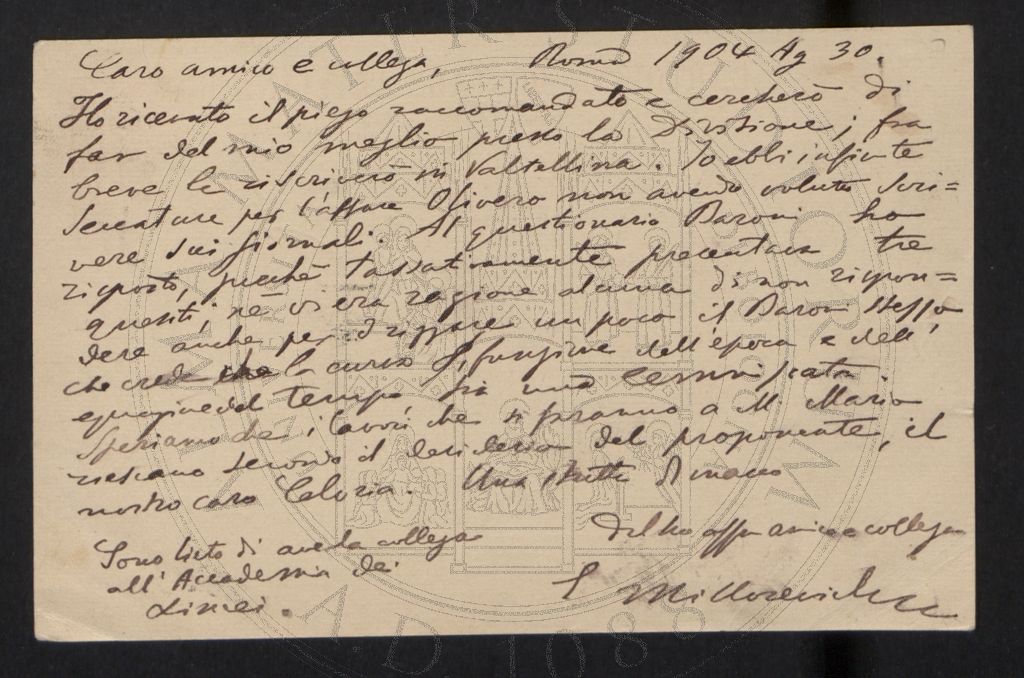 Caro amico e collega, Roma 1904 Ag 30.
Ho ricevuto il piego raccomandato e cercherò di
far del mio meglio presso la Direzione; fra
breve le riscriverò in Valtellina. Io ebbi infinite
seccature per l'affare Olivero non avendo voluto scri=
vere sui giornali. Al questionario Baroni ho
risposto, perchè tassativamente presentava tre
quesiti, nè vi era ragione alcuna di non rispon=
dere anche per un poco il Baroni stesso,
che crede la curva funzione dell'epoca e dell'
equazione del tempo sia una
Speriamo che i lavori che si faranno a M. Mario
riescano secondo il desiderio del proponente, il
nostro caro Celoria. Una stretta di mano
dal suo aff amico e collega
E Millosevich
Sono lieto di averla collega
all'Accademia dei
Lincei.
A.D. 1088